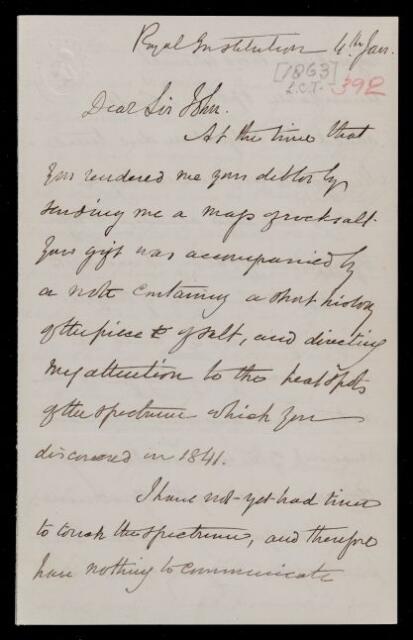 Royal Institution 4th Jan.
[1863]
L.C.T. 392
Dear Sir John.
At the time that
you rendered me your debtor by
sending me a mass of rocksalt
your gift was accompanied by
a note containing a short history
of the piece of salt, and directing
my attention to the heat spots
of the spectrum which you
discovered in 1841.
I have not yet had time
to touch the spectrum, and therefore
have nothing to communicate